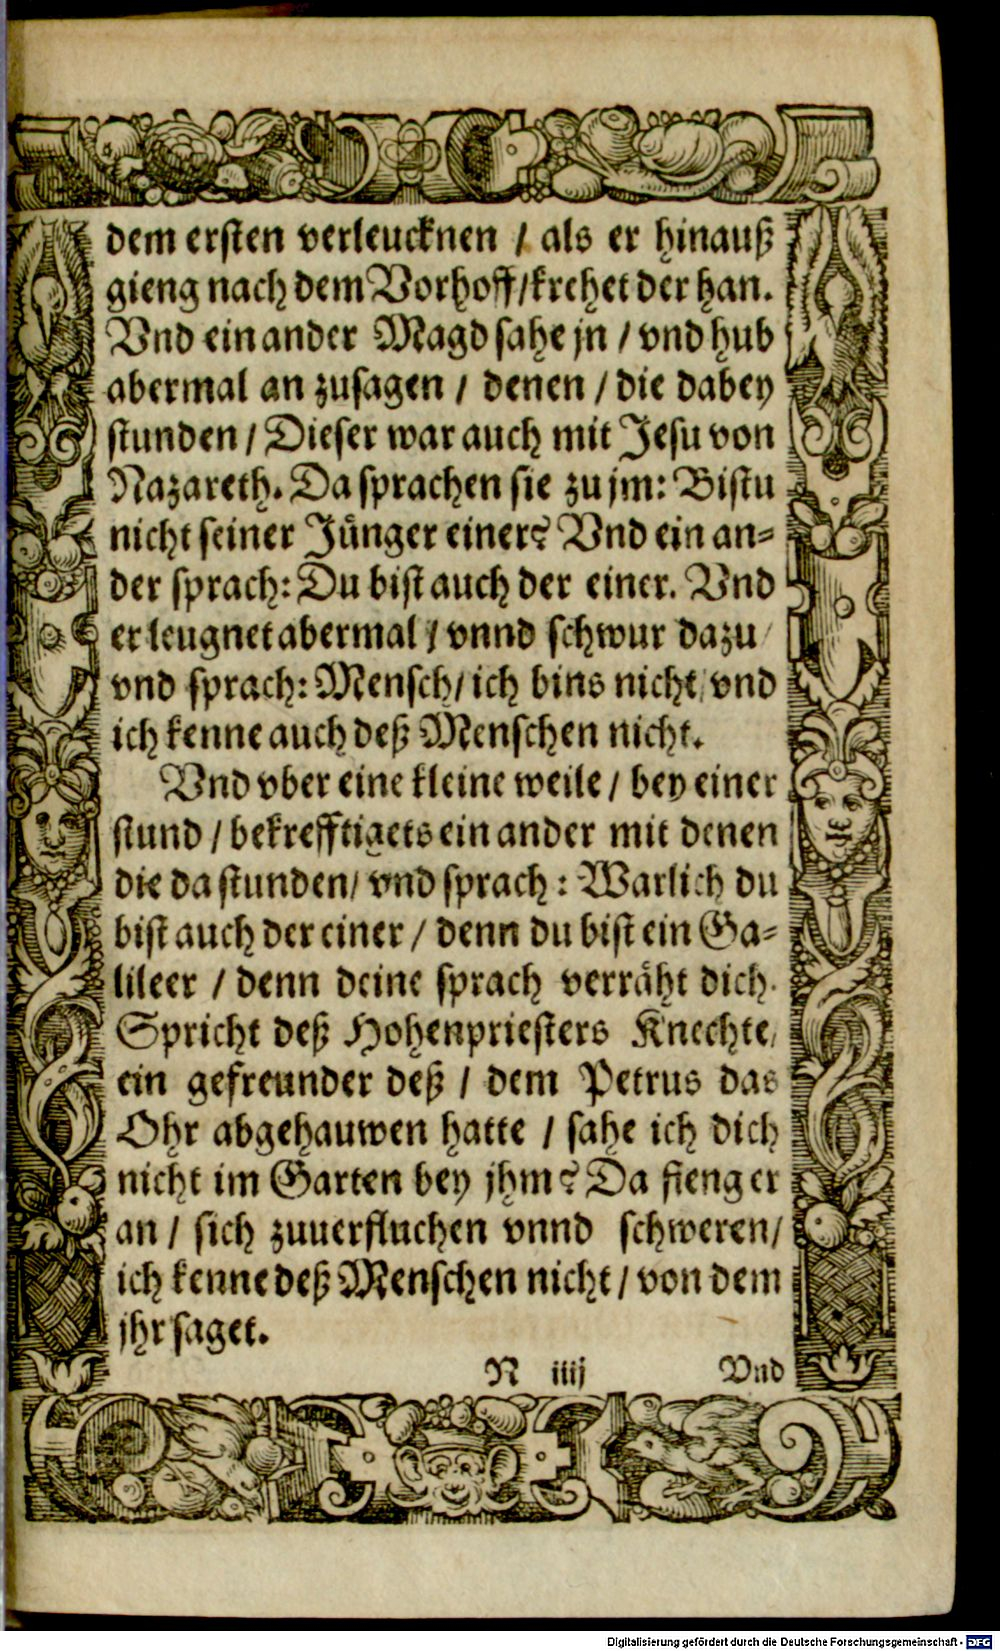 dem ersten verleucknen / als er hinauß
gieng nach dem Vorhoff / krehet der han.
Vnd ein ander Magd sahe jn / vnd hub
abermal an zusagen / denen / die dabey
stunden / Dieser war auch mit Jesu von
Nazareth. Da sprachen sie zu jm: Bistu
nicht seiner Jünger einer? Vnd ein an-
der sprach: Du bist auch der einer. Vnd
er leugnet abermal / vnnd schwur dazu /
vnd sprach: Mensch / ich bins nicht / vnd
ich kenne auch deß Menschen nicht.
Vnd vber eine kleine weile / bey einer
stund / bekrefftigets ein ander mit denen
die da stunden / vnd sprach: Warlich du
bist auch der einer / denn du bist ein Ga-
lileer / denn deine sprach verräht dich.
Spricht deß Hohenpriesters Knechte /
ein gefreunder deß / dem Petrus das
Ohr abgehauwen hatte / sahe ich dich
nicht im Garten bey jhm? Da fieng er
an / sich zuuerfluchen vnnd schweren /
ich kenne deß Menschen nicht / von dem
jhr saget.
N iiij Vnd
Digitalisierung gefördert durch die Deutsche Forschungsgemeinschaft - DFG